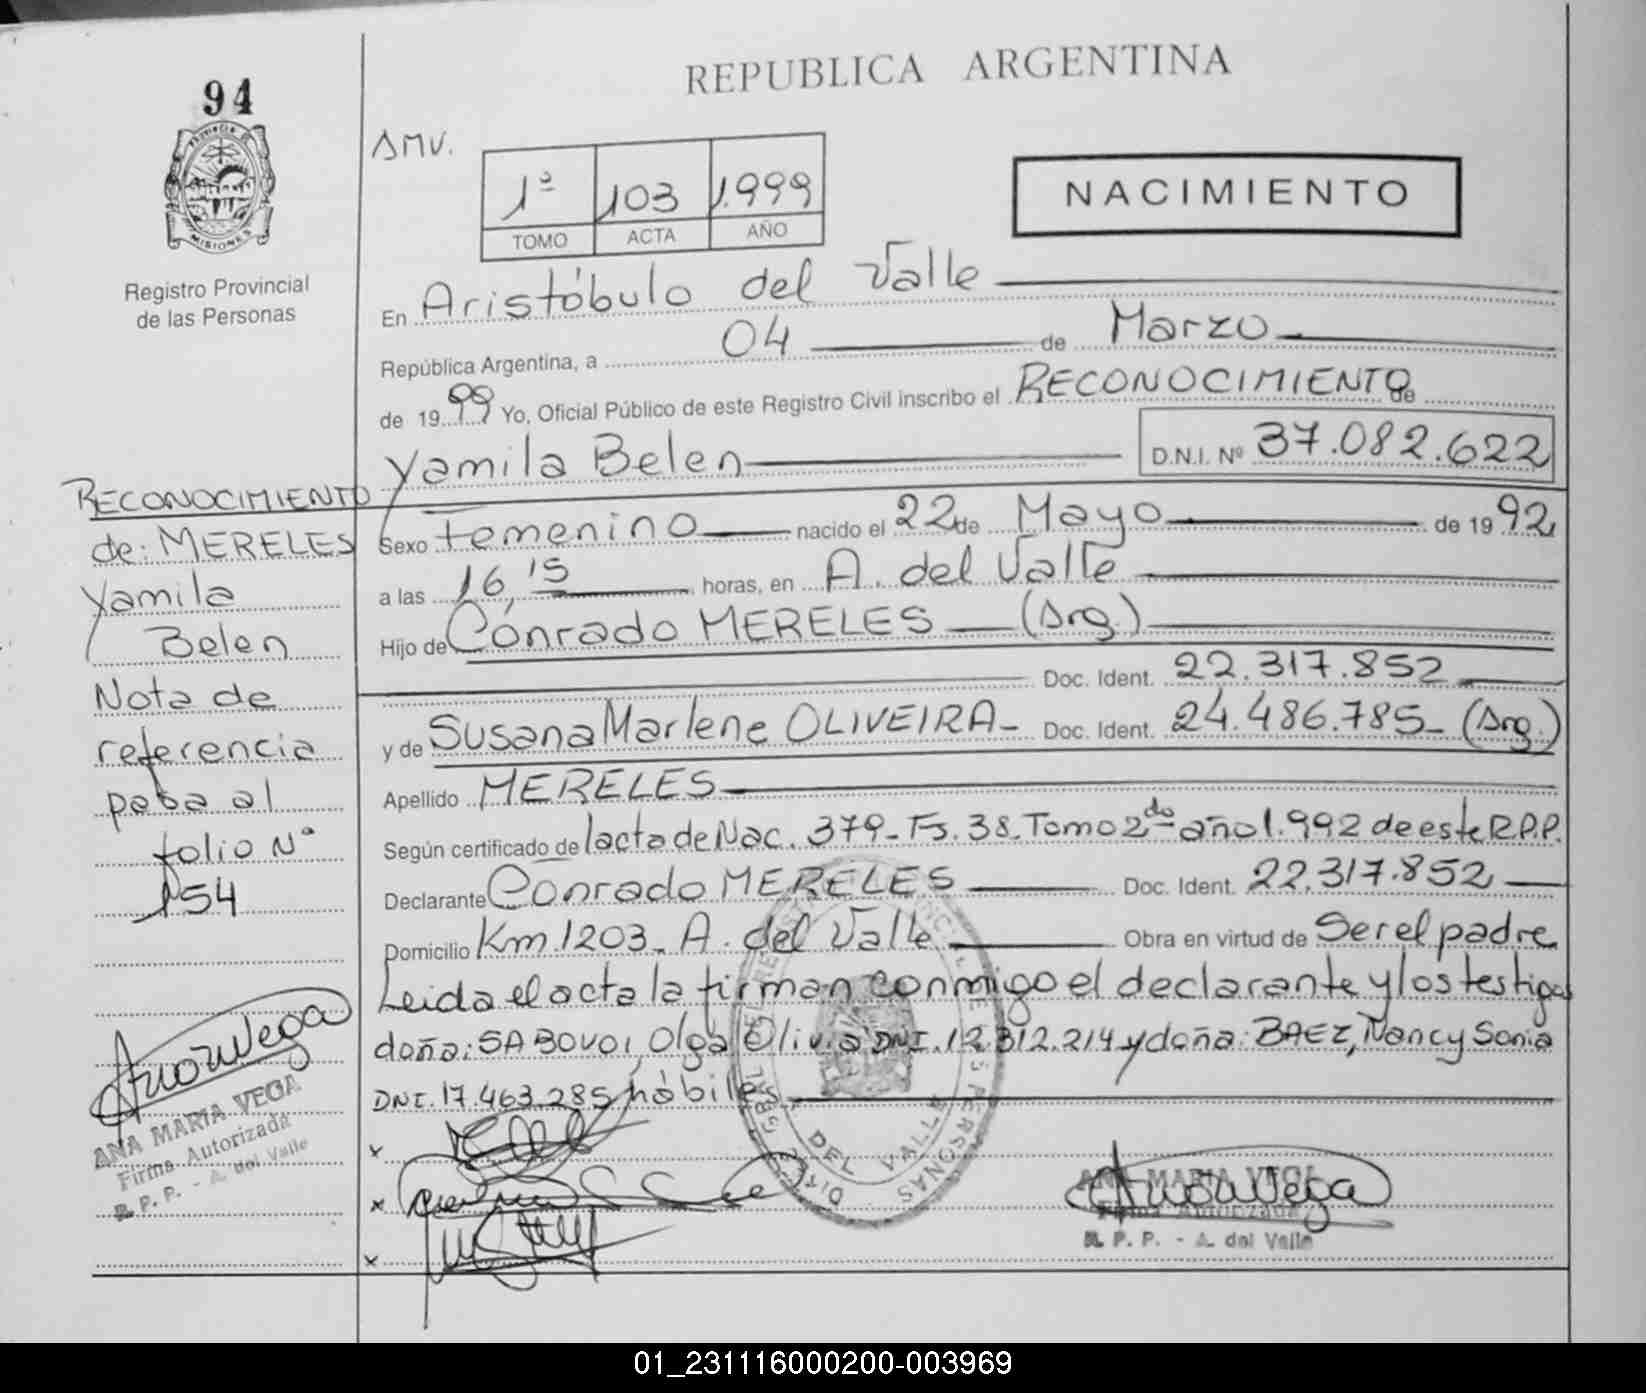 REPUBLICA ARGENTINA
94
PROVINCIA DE
MISIONES
Registro Provincial
de las Personas
AMV.
1º 103 1.999
TOMO ACTA AÑO
NACIMIENTO
En Aristóbulo del Valle
República Argentina, a 04 de Marzo
de 1999 Yo, Oficial Público de este Registro Civil inscribo el RECONOCIMIENTO de
Yamila Belen D.N.I. Nº 37.082.622
Sexo femenino nacido el 22 de Mayo de 1992
a las 16,15 horas, en A. del Valle
Hijo de Conrado MERELES (Arg.)
Doc. Ident. 22.317.852
y de Susana Marlene OLIVEIRA- Doc. Ident. 24.486.785- (Arg.)
Apellido MERELES
Según certificado de lacta de Nac. 379-Fs.38.Tomo 2do año 1.992 de este R.P.P.
Declarante Conrado MERELES Doc. Ident. 22.317.852
Domicilio Km 1203- A. del Valle Obra en virtud de Ser el padre
Leida el acta la firman conmigo el declarante y los testigos
doña: SABOVOI, Olga Olivia DNI.12.312.214 y doña: BAEZ, Nancy Sonia
DNI.17.463.285 hábiles
RECONOCIMIENTO
de: MERELES
Yamila
Belen
Nota de
referencia
pasa al
folio Nº
154
ANA MARIA VEGA
Firma Autorizada
R. P. P. - A. del Valle
x
x
x
DEL VALLE
ANA MARIA VEGA
Firma Autorizada
R. P. P. - A. del Valle
01_231116000200-003969